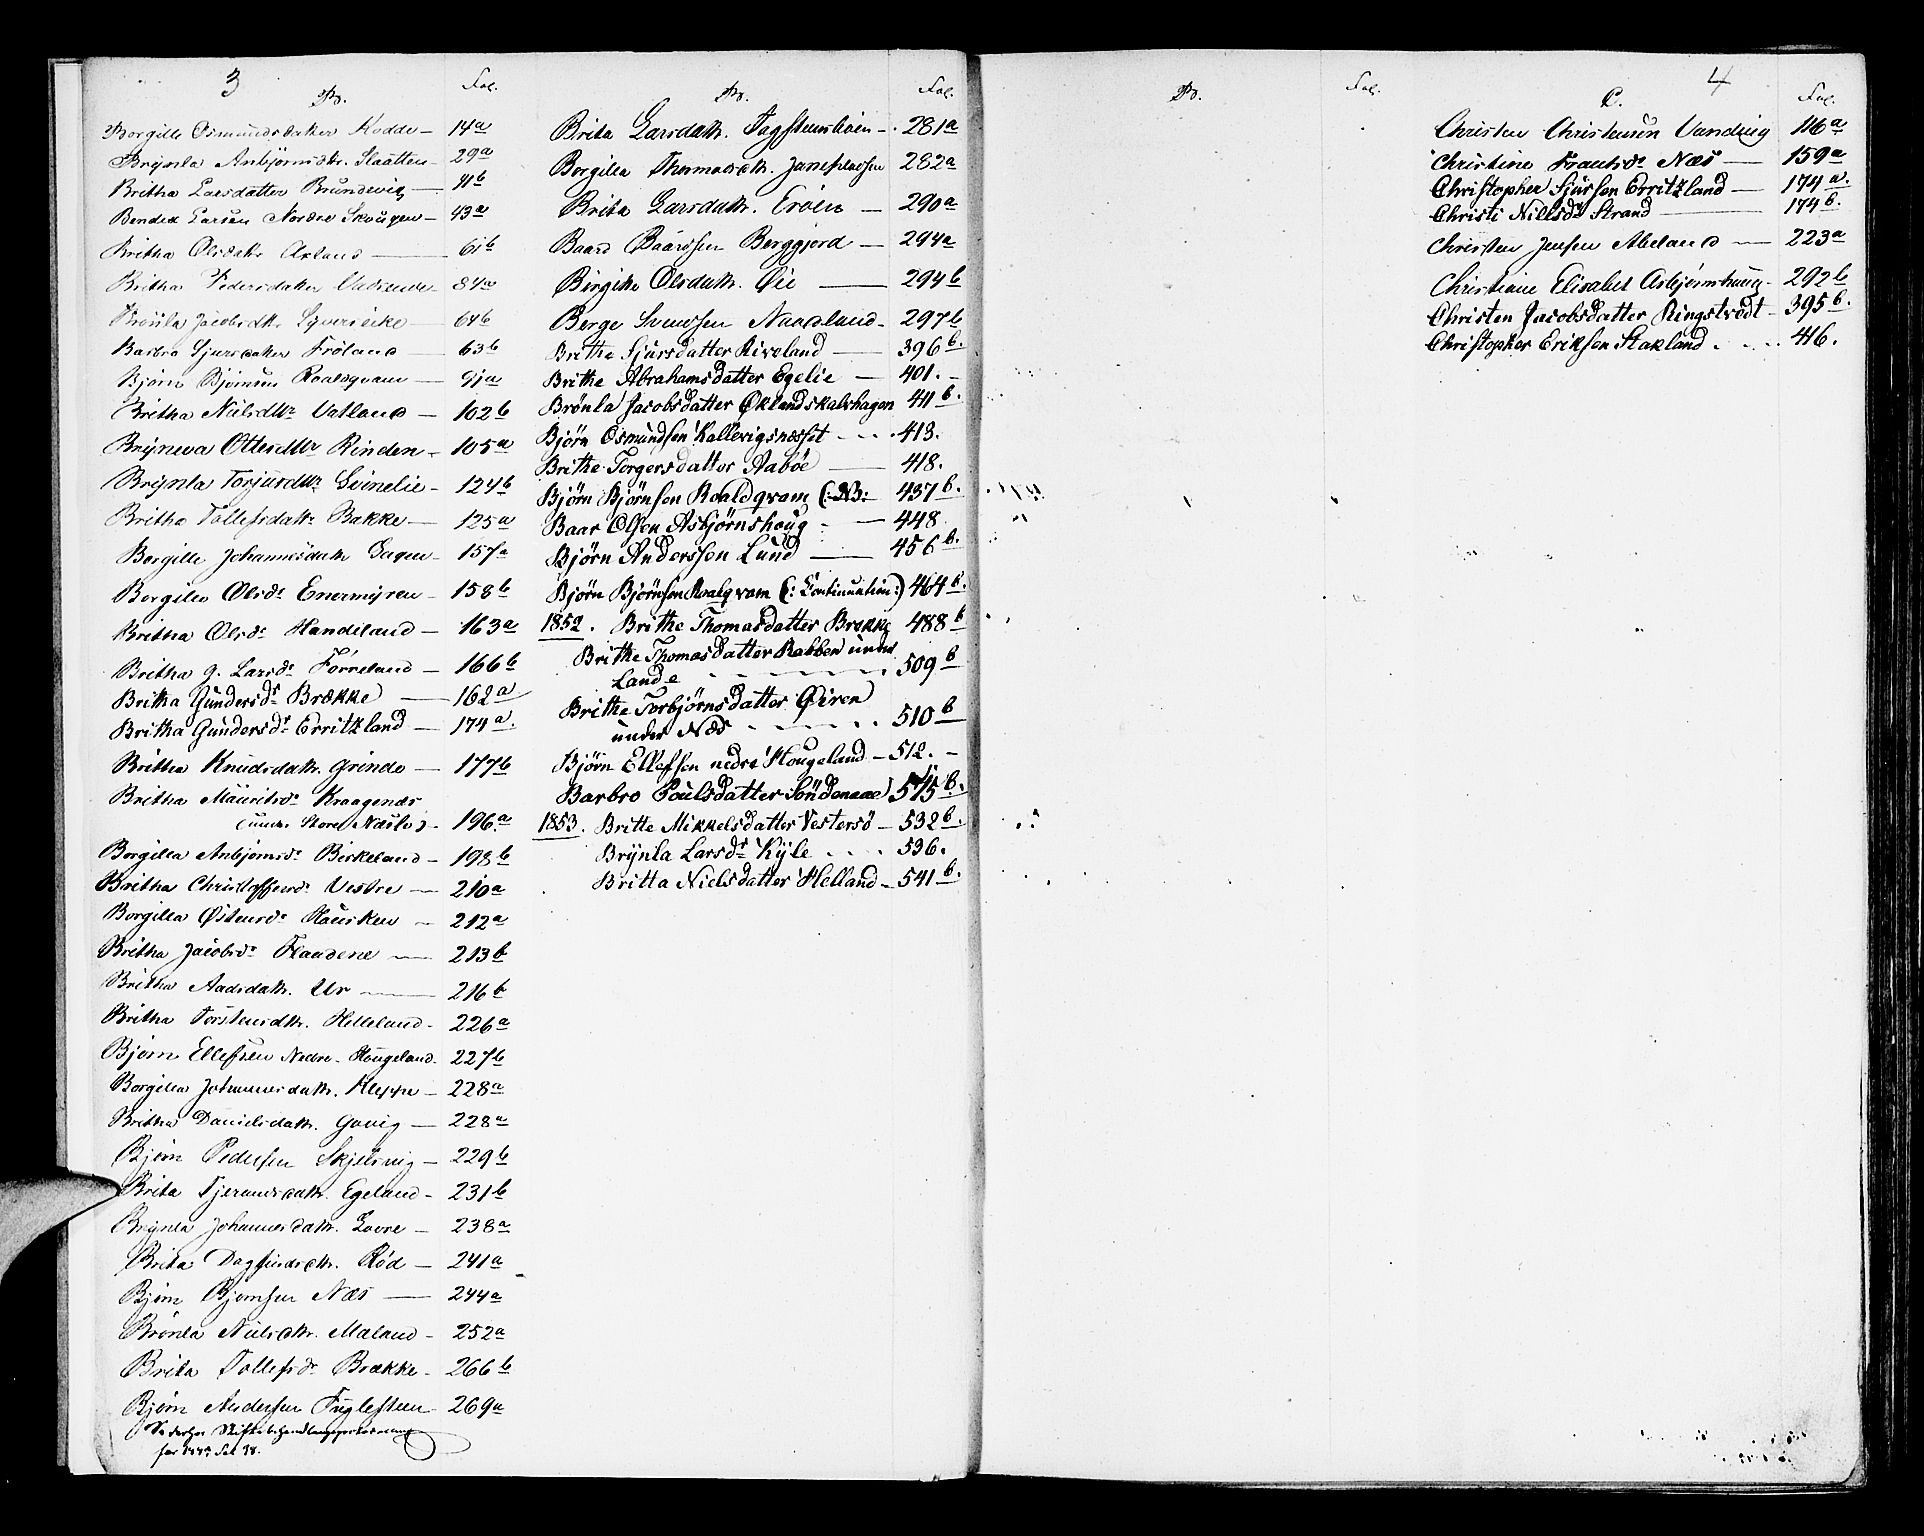 3
B.
Fol.
Borgille Osmundsdatter Kodde — 14a
Brynla Anbjørnsdtr. Slaatten — 29a
Britha Larsdatter Brundevig — 41b
Bendix Larsen Nordre Skougen — 43a
Britha Olsdatr Axland — 61b
Britha Pedersdatter — 84a
Brønla Jacobsdtr. — 64b
Barbro Sjursdatter Frøland — 63b
Bjørn Bjørnsen Roaldqvam — 91a
Britha Nielsdtr Vatland — 102b
Bryneva Ottersdttr Rinden — 105a
Brynla Torjusdttr Leinelie — 124b
Britha Tollefsdatr Bakke — 125a
Borgille Johannesdatr Hagen — 157a
Borgilla Olsdr Enermyren — 158b
Britha Olsdr Handeland — 163a
Britha G. Larsdr Førreland — 166b
Britha Gundersdr Brække — 162a
Britha Gundersdr Erritzland — 174a.
Britha Knudsdatr. Grinde — 177b
Britha Mauritsdr Kraagenæs
(under Store Næsle) — 196a
Borgilla Anbjørnsdr Birkeland — 198b
Britha Christoffersdr Vestre — 210a
Borgilla Østensdr Hausken — 212a
Britha Jacobsdr Flaadene — 213b
Britha Aadsdatr. Ur — 216b
Britha Torstensdtr. Helleland — 226a
Bjørn Ellefsen Nedre Hougeland 227b
Borgilla Johannesdatr. Kleppe — 228a
Britha Danielsdatr. Govig — 228a
Bjørn Pedersen Skjelsvig — 229b
Brita Tjerandsdatr. Egeland — 231b
Brynla Johannesdatr. Lovre — 238a
Brita Dagfindsdtr. Rød — 241a
Bjørn Bjørnsen Næs — 244a
Brønla Nielsdtr. Maland — 252a
Brita Tollefsdr Brække — 266b
Bjørn Andersen Fuglesteen — 269a
Se derhos Skiftebehandlingsprotocollen
for 1847 Fol 98.
B.
Fol.
Brita Larsdatr. — 281a
Borgilla Thormodsdtr. Jansplassen 282a
Brita Larsdatr. Erøen — 290a
Baard Baardsen Berggjord — 294a
Birgithe Olsdatr. Øie — 294b
Berge Svensen Naadland — 297b
Brithe Sjursdatter Kiveland — 396b.
Brithe Abrahamsdatter Egelie — 401.
Brønla Jacobsdatter Øklandskalvhagen 411b.
Bjørn Osmundsen Kallevigsnæsset — 413.
Brithe Torgersdatter Aabøe — 418.
Bjørn Bjørnsen Roaldqvam (: NB: — 437b.
Baar Olsen Asbjørnshoug — 448.
Bjørn Anderssen Lund — 456b.
Bjørn Bjørnsen Roalqvam (: Continuation:) 464b.
1852. Brithe Thomasdatter Brekke 488b
Brithe Thomasdatter Rabben under
Lande — 509b
Brithe Torbjørnsdatter Øiren
under Næs — 510b
Bjørn Ellefsen nedre Hougeland — 512.
Barbro Poulsdatter Søndenaae) 515b.
1853. Britte Mikkelsdatter Vestersø — 532b.
Brynla Larsdr Kyle — 536.
Britta Nielsdatter Helland — 541b.
B.
Fol.
4
C.
Fol.
Christen Christensen Vandvig 116a
Christine Frantsdr Næs — 159a
Christopher Sjursen Erritzland — 174a.
Christi Nielsdr Strand — 174b.
Christen Jensen Abeland — 223a
Christiane Elisabet Asbjørnshaug — 292b
Christen Jacobsdatter Ringstvedt — 395b.
Christopher Eriksen Stakland — 416.